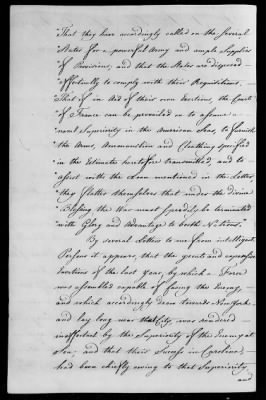 "That they have accordingly called on the several
"States for a powerful Army and ample Supplies
"of Provisions, and that the States are disposed
"effectually to comply with their Requisitions.
"That if in Aid of their own Exertions, the Court
"of France can be prevailed on to assume a
"naval Superiority in the American Seas, to furnish
"the Arms, Ammunition and Cloathing specified
"in the Estimate heretofore transmitted, and to
"assist with the Loan mentioned in the Letter,
"they flatter themselves that under the divine
"Blessing the War must speedily be terminated
"with Glory and Advantage to both Nations."
By several Letters to me from intelligent
Persons it appears, that the great and expensive
Exertions of the last year, by which a Force
was assembled capable of facing the Enemy,
and which accordingly drew towards New York
and lay long near that City, was rendered
ineffectual by the Superiority of the Enemy at
Sea; and that their Success in Carolina
had been chiefly owing to that Superiority,
and